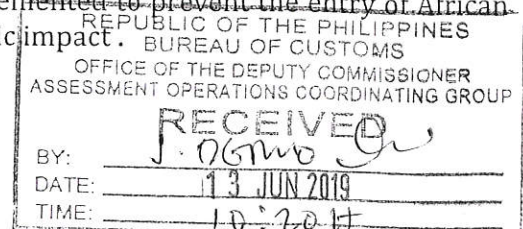 emented to prevent the entry of African
c impact.
REPUBLIC OF THE PHILIPPINES
BUREAU OF CUSTOMS
OFFICE OF THE DEPUTY COMMISSIONER
ASSESSMENT OPERATIONS COORDINATING GROUP
RECEIVED
BY:
DATE: 13 JUN 2019
TIME: 10:20